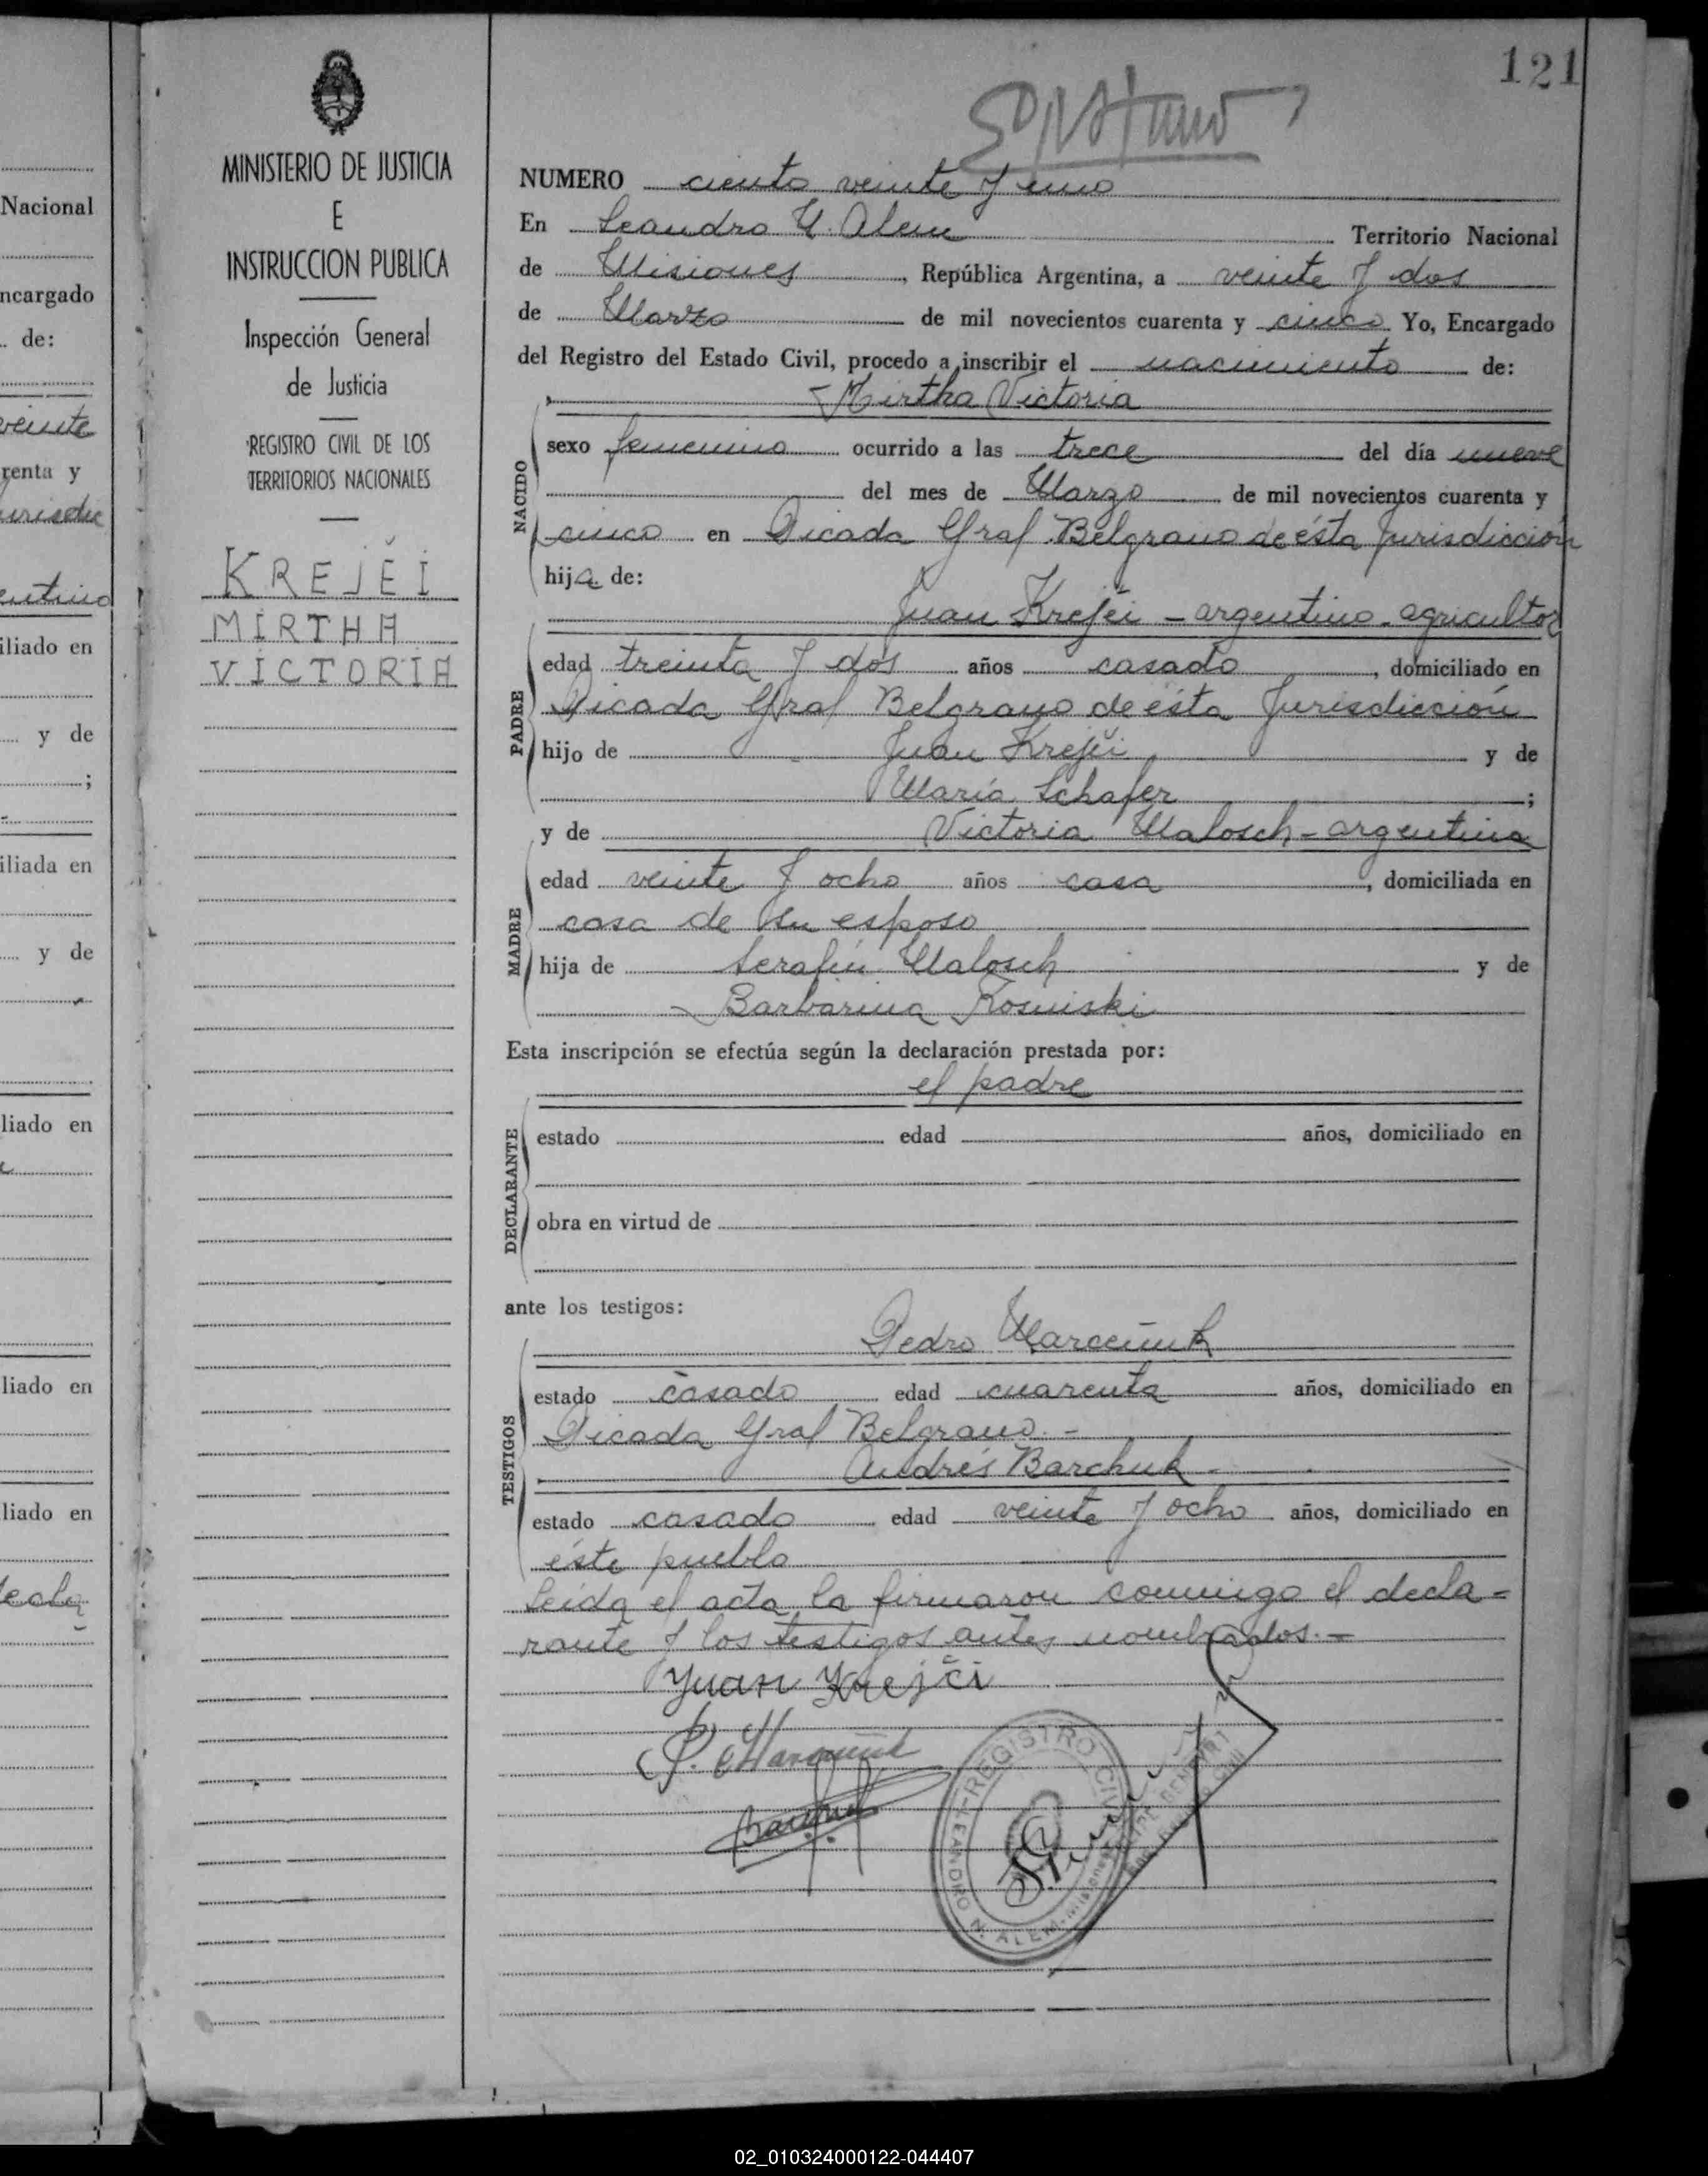 121
NUMERO ciento veinte y uno
En Leandro N. Alem Territorio Nacional
de Misiones, República Argentina, a veinte y dos
de Marzo de mil novecientos cuarenta y cinco Yo, Encargado
del Registro del Estado Civil, procedo a inscribir el nacimiento de:
Mirtha Victoria
NACIDO
sexo femenino ocurrido a las trece del día nueve
del mes de Marzo de mil novecientos cuarenta y
cinco en Picada Gral Belgrano de ésta Jurisdicción
hija de:
Juan Krejči - argentino - agricultor
PADRE
edad treinta y dos años casado, domiciliado en
Picada Gral Belgrano de ésta Jurisdicción
hijo de Juan Krejči y de
María Schafer;
y de Victoria Malosch - argentina
MADRE
edad veinte y ocho años casa, domiciliada en
casa de su esposo
hija de Serafín Malosch y de
Barbarina Kosinski
Esta inscripción se efectúa según la declaración prestada por:
el padre
DECLARANTE
estado edad años, domiciliado en
obra en virtud de
ante los testigos:
Pedro
TESTIGOS
estado casado edad cuarenta años, domiciliado en
Picada Gral Belgrano. -
Andrés Barchuk -
estado casado edad veinte y ocho años, domiciliado en
éste pueblo
Leída el acta la firmaron conmigo el decla=
rante y los testigos antes nombrados. -
Juan Krejči
P.
REGISTRO CIVIL
LEANDRO N. ALEM - Misiones
MINISTERIO DE JUSTICIA
E
INSTRUCCION PUBLICA
Inspección General
de Justicia
REGISTRO CIVIL DE LOS
TERRITORIOS NACIONALES
KREJĚI
MIRTHA
VICTORIA
Nacional
ncargado
de:
veinte
renta y
urisdic
entino
iliado en
y de
;
iliada en
y de
liado en
liado en
liado en
02_010324000122-044407